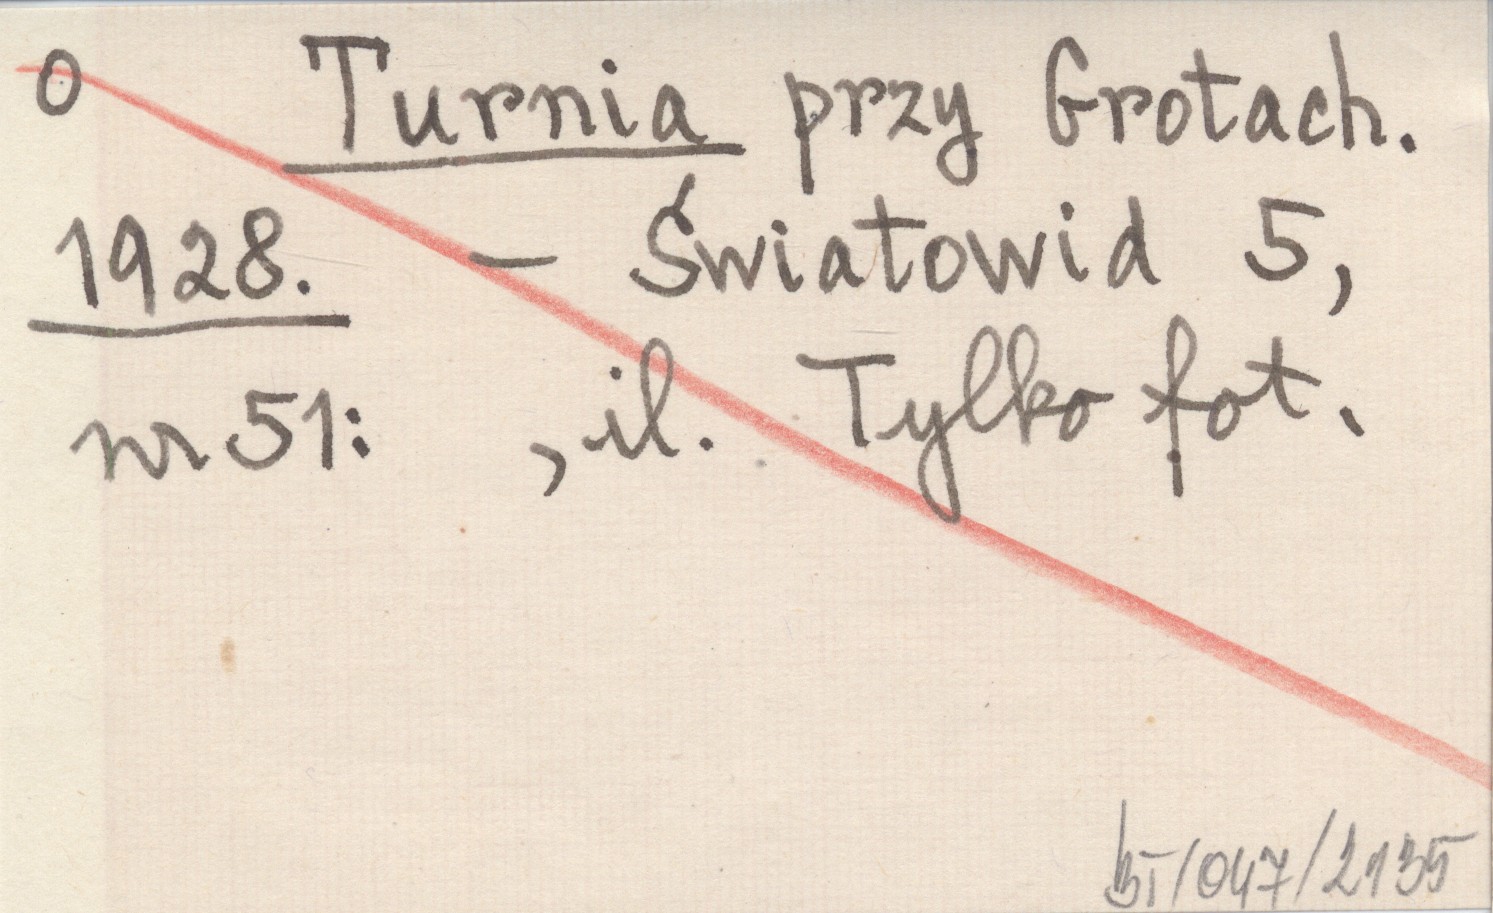 0 Turnia przy Grotach.
1928. – Światowid 5,
nr 51: , il. Tylko fot.
BI/047/2135